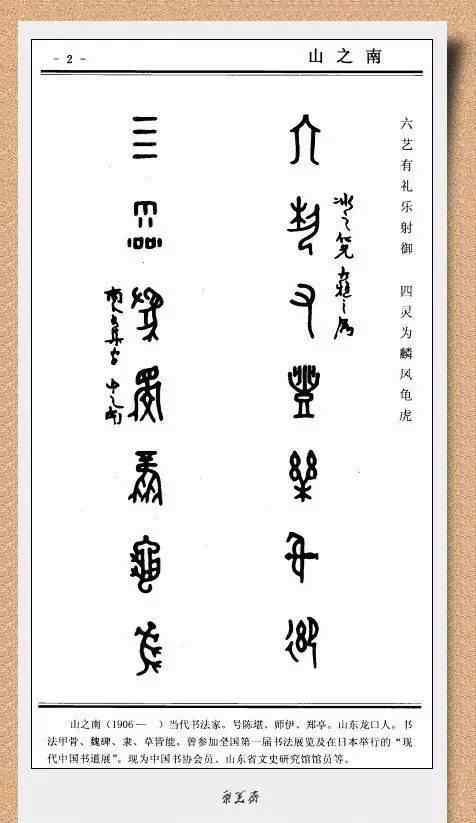 - 2 -
山之南
六艺有礼乐射御 四灵为麟凤龟虎
六藝有禮樂射御
四靈為麟鳳龜虎
山之南（1906— ）当代书法家。号陈堪、师伊、郑亭。山东龙口人。书
法甲骨、魏碑、隶、草皆能。曾参加全国第一届书法展览及在日本举行的“现
代中国书道展”。现为中国书协会员、山东省文史研究馆馆员等。